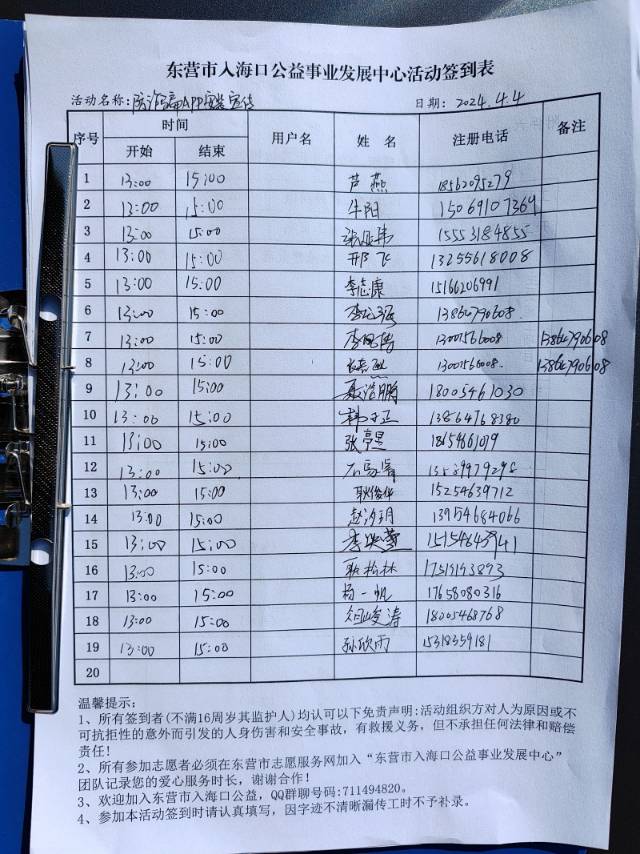 东营市入海口公益事业发展中心活动签到表
活动名称: 防诈骗APP安装宣传 日期: 2024.4.4
序号 时间 用户名 姓名 注册电话 备注
开始 结束
1 13:00 15:00 芦燕 18562095279
2 13:00 15:00 牛阳 15069107369
3 13:00 15:00 15553184855
4 13:00 15:00 邢飞 13255618008
5 13:00 15:00 李志康 15166206991
6 13:00 15:00 13864790608
7 13:00 15:00 13001566008 13864790608
8 13:00 15:00 13001566008 13864790608
9 13:00 15:00 聂浩鹏 18005461030
10 13:00 15:00 13864768380
11 13:00 15:00 张亭昱 18654661079
12 13:00 15:00 13589979296
13 13:00 15:00 耿俊华 15254639712
14 13:00 15:00 赵汐玥 13954684066
15 13:00 15:00
16 13:00 15:00 耿柏林
17 13:00 15:00 杨一帆 17658080316
18 13:00 15:00 18005468768
19 13:00 15:00 孙欣雨 15318359181
20
温馨提示:
1、所有签到者(不满16周岁其监护人)均认可以下免责声明:活动组织方对人为原因或不
可抗拒性的意外而引发的人身伤害和安全事故，有救援义务，但不承担任何法律和赔偿
责任!
2、所有参加志愿者必须在东营市志愿服务网加入“东营市入海口公益事业发展中心”
团队记录您的爱心服务时长，谢谢合作!
3、欢迎加入东营市入海口公益，QQ群聊号码:711494820。
4、参加本活动签到时请认真填写，因字迹不清晰漏传工时不予补录。